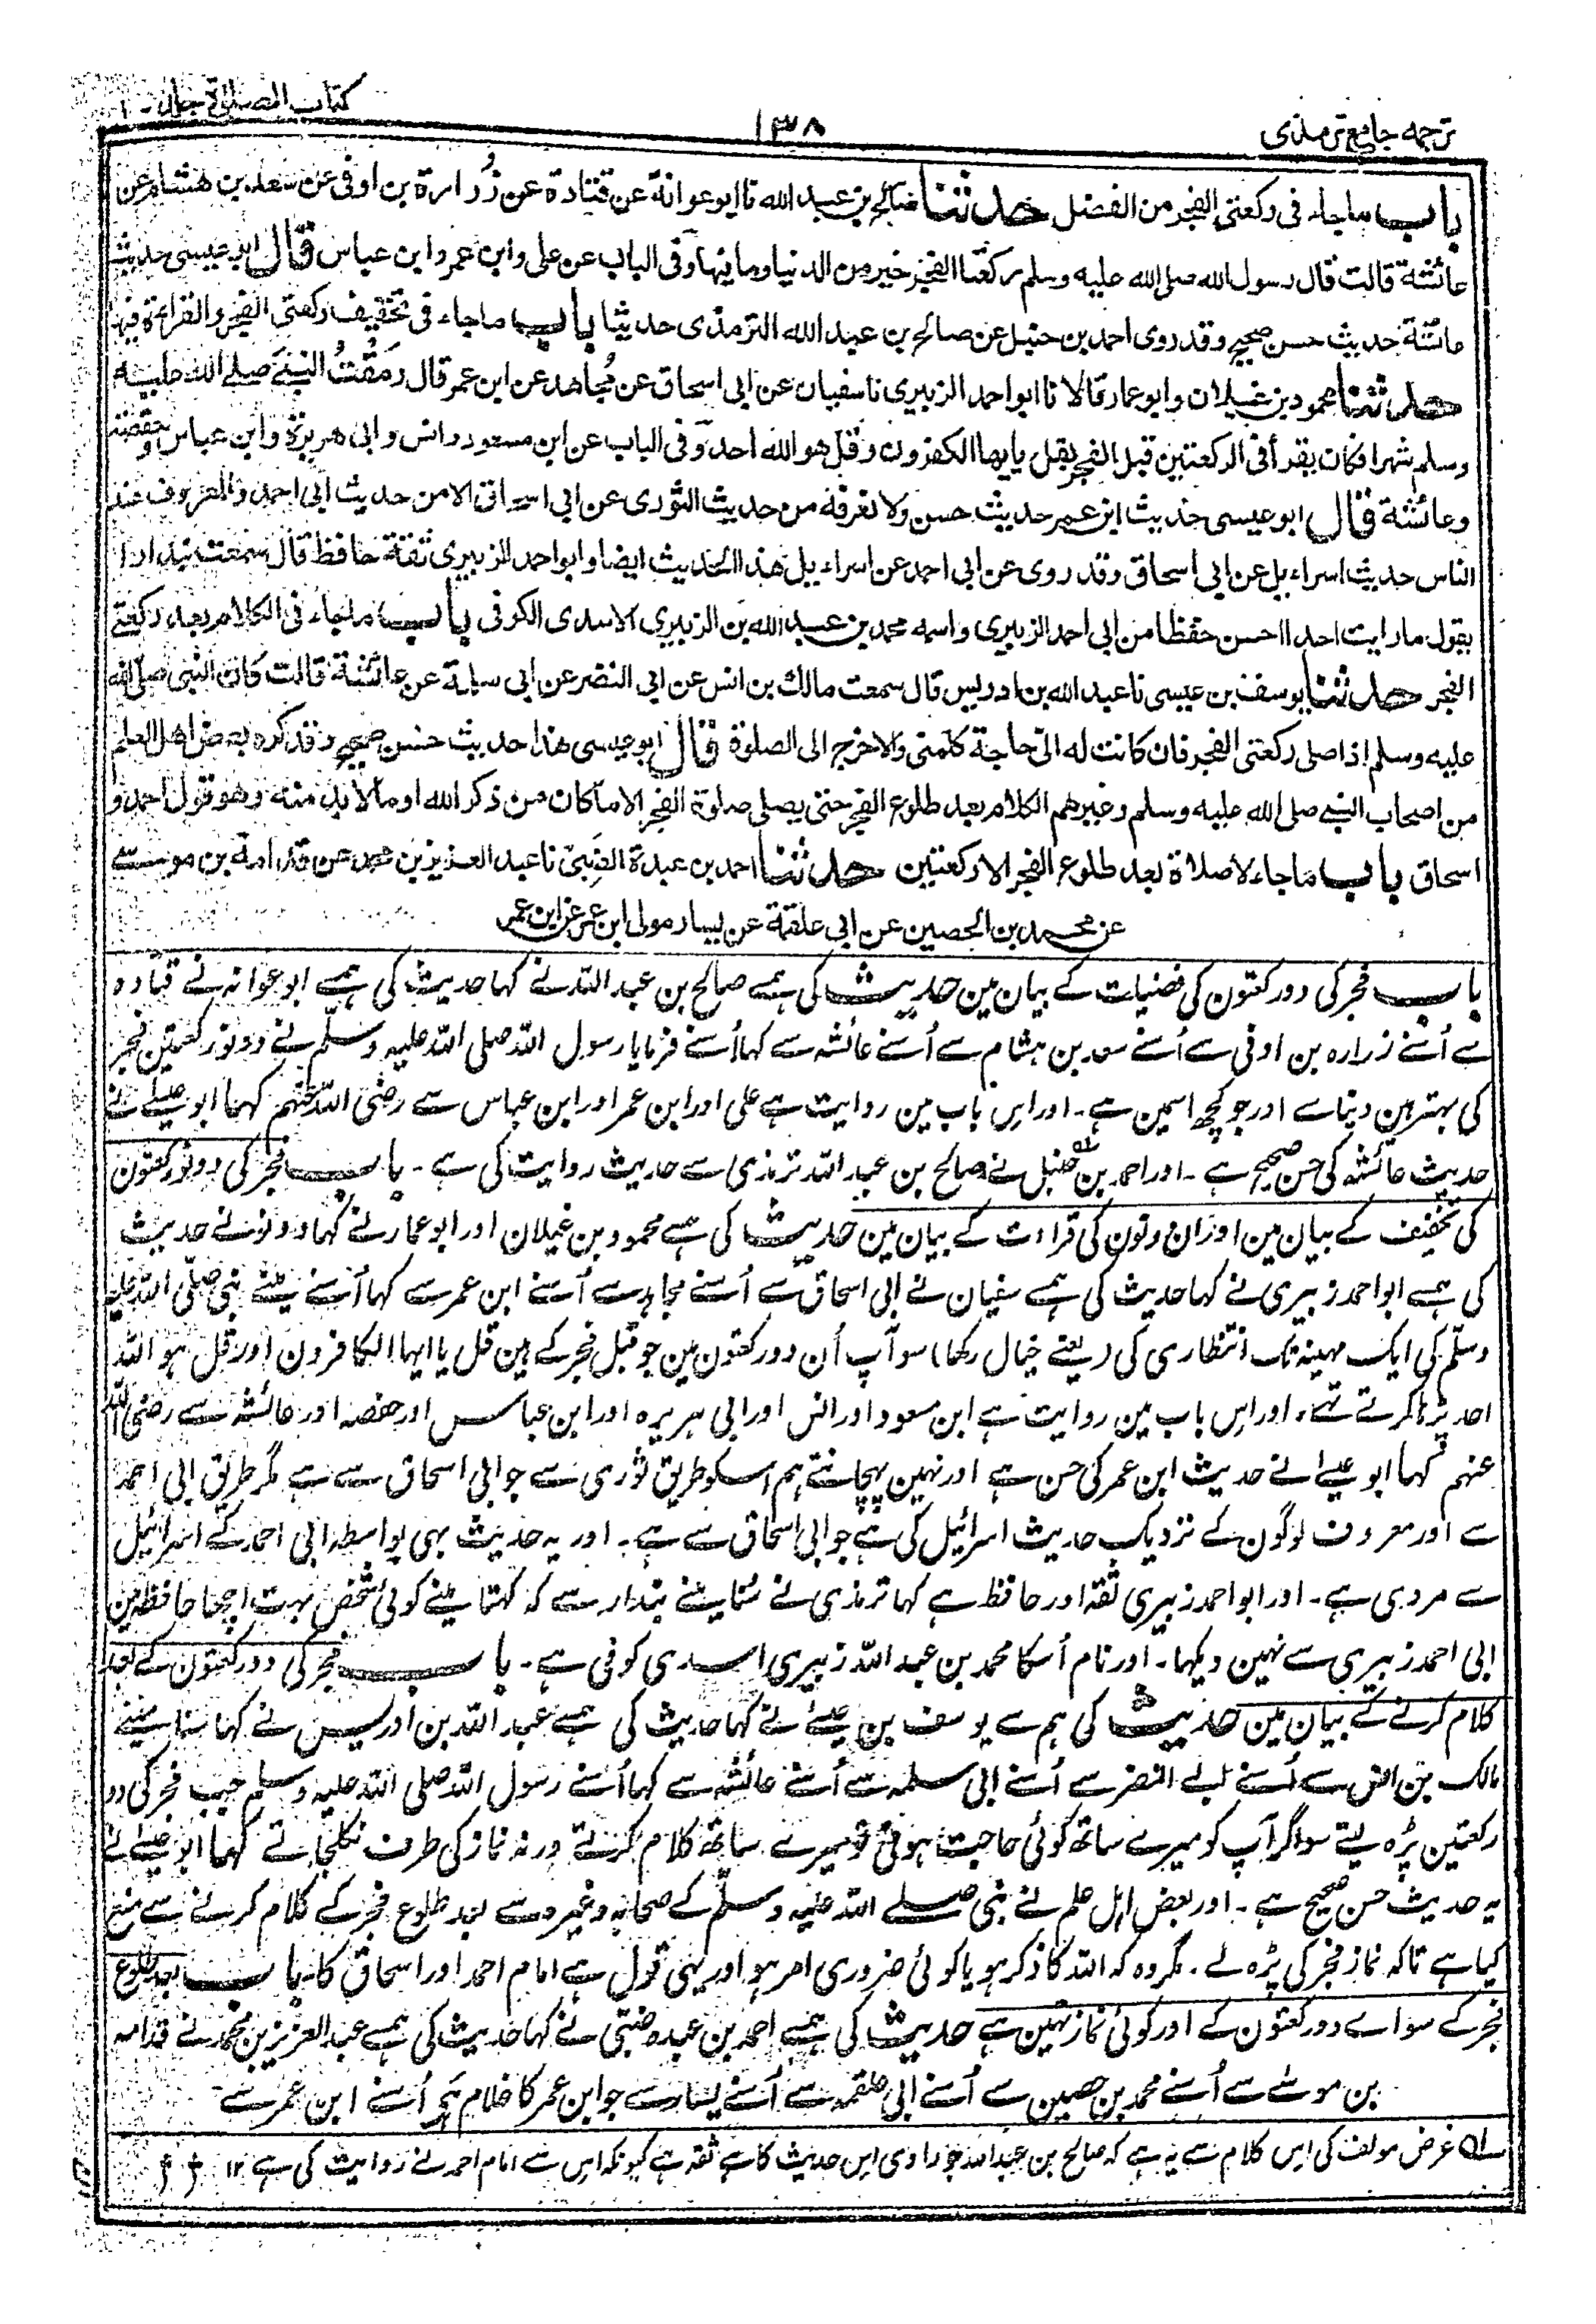 ترجمہ جامع ترمذی
۱۳۸
کتاب الصلوٰۃ جلد ۱
باب ماجاء فی رکعتی الفجر من الفضل حدثنا صالح بن عبد الله نا ابو عوانة عن قتادة عن زُرارة بن اوفی عن سعد بن هشام عن
عائشة قالت قال رسول الله صلی الله علیه وسلم رکعتا الفجر خیر من الدنیا وما فیها وفی الباب عن علی وابن عمر وابن عباس قال ابو عیسی حدیث
عائشة حدیث حسن صحیح وقد روی احمد بن حنبل عن صالح بن عبد الله الترمذی حدیثا باب ماجاء فی تخفیف رکعتی الفجر والقراءة فیها
حدثنا محمود بن غیلان وابو عمار قالا نا ابو احمد الزبیری نا سفیان عن ابی اسحاق عن مُجاهد عن ابن عمر قال رَمَقْتُ النبی صلی الله علیه
وسلم شهرا فکان یقرأ فی الرکعتین قبل الفجر بقل یایها الکفرون وقل هو الله احد وفی الباب عن ابن مسعود وانس وابی هریرة وابن عباس وحفصة
وعائشة قال ابو عیسی حدیث ابن عمر حدیث حسن ولا نعرفه من حدیث الثوری عن ابی اسحاق الا من حدیث ابی احمد والمعروف عند
الناس حدیث اسراءیل عن ابی اسحاق وقد روی عن ابی احمد عن اسراءیل هذا الحدیث ایضا وابو احمد الزبیری ثقة حافظ قال سمعت بندارا
یقول ما رایت احدا احسن حفظا من ابی احمد الزبیری واسمه محمد بن عبد الله بن الزبیری الاسدی الکوفی باب ماجاء فی الکلام بعد رکعتی
الفجر حدثنا یوسف بن عیسی نا عبد الله بن ادریس قال سمعت مالك بن انس عن ابی النضر عن ابی سلمة عن عائشة قالت کان النبی صلی الله
علیه وسلم اذا صلی رکعتی الفجر فان کانت له الیّ حاجة کلمنی والا خرج الی الصلوة قال ابو عیسی هذا حدیث حسن صحیح وقد کره بعض اهل العلم
من اصحاب النبی صلی الله علیه وسلم وغیرهم الکلام بعد طلوع الفجر حتی یصلی صلوة الفجر الا ما کان من ذکر الله او ما لا بد منه وهو قول احمد و
اسحاق باب ماجاء لا صلاة بعد طلوع الفجر الا رکعتین حدثنا احمد بن عبدة الضبیّ نا عبد العزیز بن محمد عن قدامة بن موسی
عن محمد بن الحصین عن ابی علقمة عن یسار مولی ابن عمر عن ابن عمر
باب فجر کی دو رکعتون کی فضیلت کے بیان مین حدیث کی ہمسے صالح بن عبد اللہ نے کہا حدیث کی ہمسے ابو عوانہ نے قتادہ
سے اُسنے زرارہ بن اوفی سے اُسنے سعد بن ہشام سے اُسنے عائشہ سے کہا اُسنے فرمایا رسول اللہ صلی اللہ علیہ وسلم نے دونو رکعتین فجر
کی بہتر ہین دنیا سے اور جو کچھ اسمین ہے۔ اور اس باب مین روایت ہے علی اور ابن عمر اور ابن عباس سے رضی اللہ عنہم کہا ابو عیسے نے
حدیث عائشہ کی حسن صحیح ہے۔ اور احمد بن حنبل نے صالح بن عبد اللہ ترمذی سے حدیث روایت کی ہے۔ باب فجر کی دونو رکعتون
کی تخفیف کے بیان مین اور ان دونون کی قراءت کے بیان مین حدیث کی ہمسے محمود بن غیلان اور ابو عمار نے کہا دونونے حدیث
کی ہمسے ابو احمد زبیری نے کہا حدیث کی ہمسے سفیان نے ابی اسحاق سے اُسنے مجاہد سے اُسنے ابن عمر سے کہا اُسنے مینے نبی صلی اللہ علیہ
وسلم کی ایک مہینہ تک انتظاری کی (یعنے خیال رکھا) سو آپ اُن دو رکعتون مین جو قبل فجر کے ہین قل یا ایہا الکافرون اور قل ہو اللہ
احد پڑہا کرتے تہے۔ اور اس باب مین روایت ہے ابن مسعود اور انس اور ابی ہریرہ اور ابن عباس اور حفصہ اور عائشہ سے رضی اللہ
عنہم کہا ابو عیسے نے حدیث ابن عمر کی حسن ہے اور نہین پہچانتے ہم اسکو طریق ثوری سے جو ابی اسحاق سے ہے مگر طریق ابی احمد
سے اور معروف لوگون کے نزدیک حدیث اسرائیل کی ہے جو ابی اسحاق سے ہے۔ اور یہ حدیث بہی بواسطہ ابی احمد کے اسرائیل
سے مروی ہے۔ اور ابو احمد زبیری ثقہ اور حافظ ہے کہا ترمذی نے سنا مینے بندار سے کہ کہتا مینے کوئی شخص بہت اچھا حافظہ مین
ابی احمد زبیری سے نہین دیکہا۔ اور نام اُسکا محمد بن عبد اللہ زبیری اسدی کوفی ہے۔ باب فجر کی دو رکعتون کے بعد
کلام کرنے کے بیان مین حدیث کی ہم سے یوسف بن عیسے نے کہا حدیث کی ہمسے عبد اللہ بن ادریس نے کہا سنا مینے
مالک بن انس سے اُسنے ابی النضر سے اُسنے ابی سلمہ سے اُسنے عائشہ سے کہا اُسنے رسول اللہ صلی اللہ علیہ وسلم جب فجر کی دو
رکعتین پڑہ لیتے سو اگر آپ کو میرے ساتھ کوئی حاجت ہوتی تو میرے ساتھ کلام کرتے ورنہ نماز کی طرف نکلجاتے کہا ابو عیسے نے
یہ حدیث حسن صحیح ہے۔ اور بعض اہل علم نے نبی صلے اللہ علیہ وسلم کے صحابہ وغیرہ سے بعد طلوع فجر کے کلام کرنے سے منع
کیا ہے تاکہ نماز فجر کی پڑہ لے۔ مگر وہ کہ اللہ کا ذکر ہو یا کوئی ضروری امر ہو اور یہی قول ہے امام احمد اور اسحاق کا۔ باب بعد طلوع
فجر کے سوائے دو رکعتون کے اور کوئی نماز نہین ہے حدیث کی ہمسے احمد بن عبدہ ضبی نے کہا حدیث کی ہمسے عبد العزیز بن محمد نے قدامہ
بن موسے سے اُسنے محمد بن حصین سے اُسنے ابی علقمہ سے اُسنے یسار سے جو ابن عمر کا غلام ہے اُسنے ابن عمر سے
لہ غرض مولف کی اس کلام سے یہ ہے کہ صالح بن عبد اللہ جو راوی اس حدیث کا ہے ثقہ ہے کیونکہ اس سے امام احمد نے روایت کی ہے ۱۲